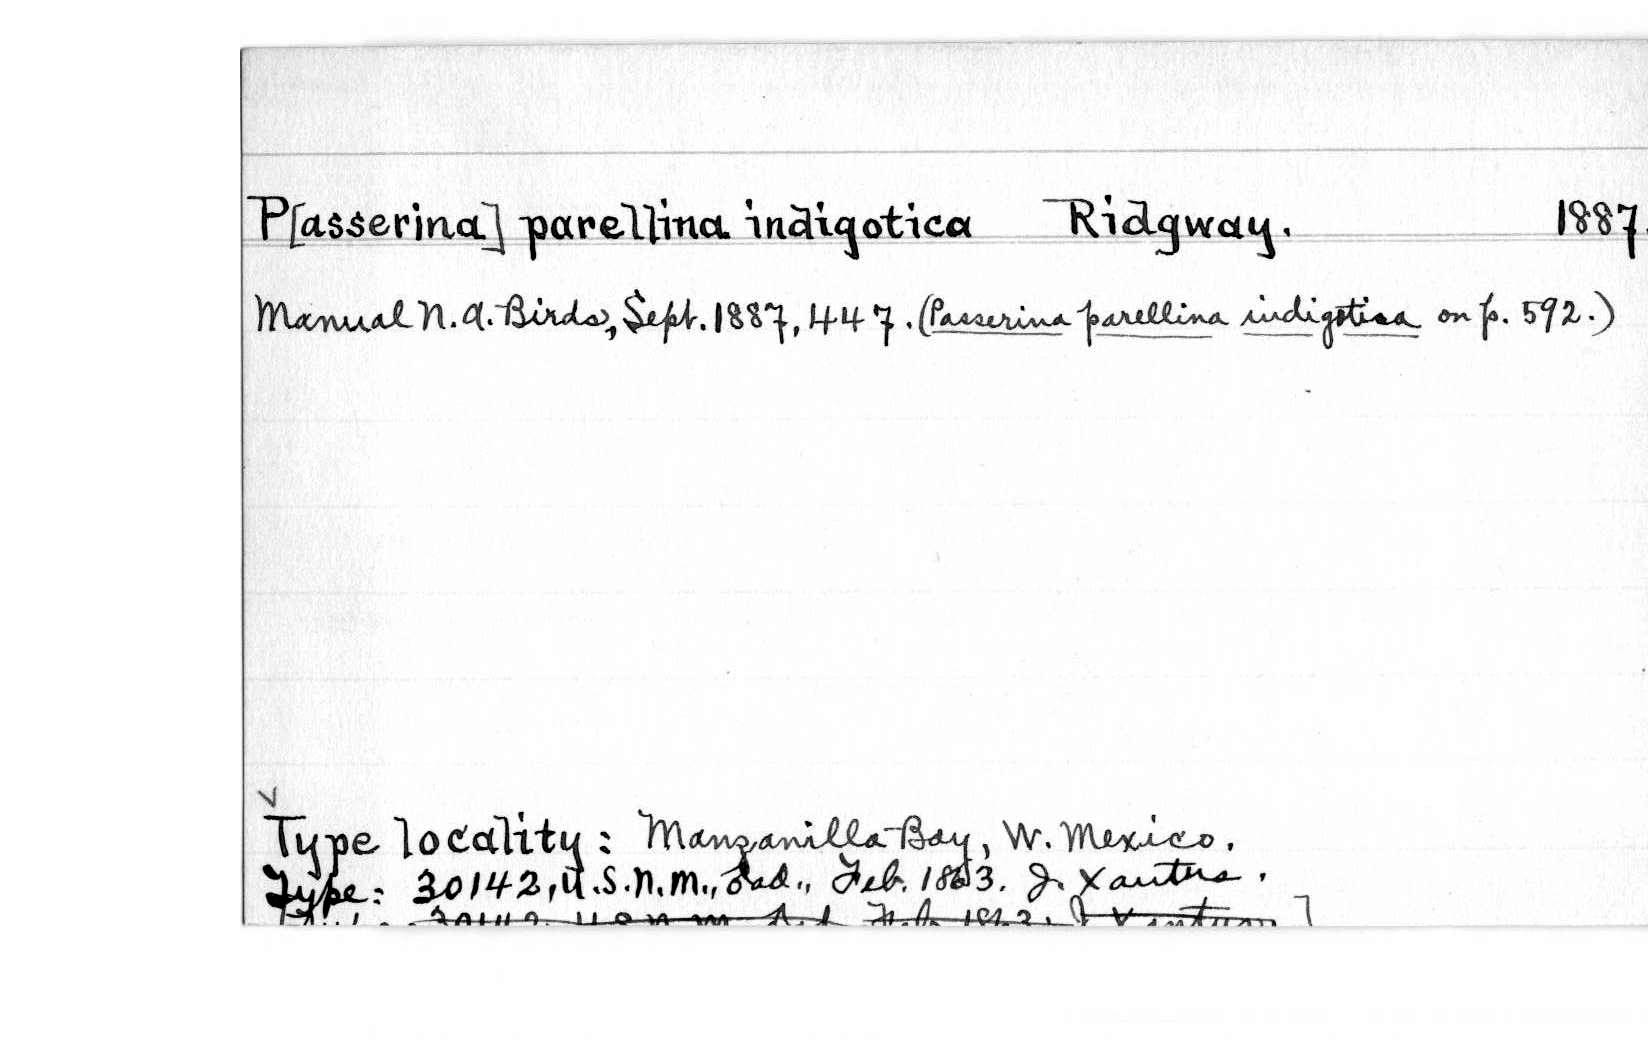 P[asserina] parellina indigotica Ridgway. 1887.
Manual N.A. Birds, Sept. 1887, 447. (Passerina parellina indigotica on p. 592.)
Type locality: Manzanilla Bay, W. Mexico.
Type: 30142, U.S.N.M., ad., Feb. 1863. J. Xantus.
30142 U.S.N.M. Ad. Feb. 1863. J Xantus ]